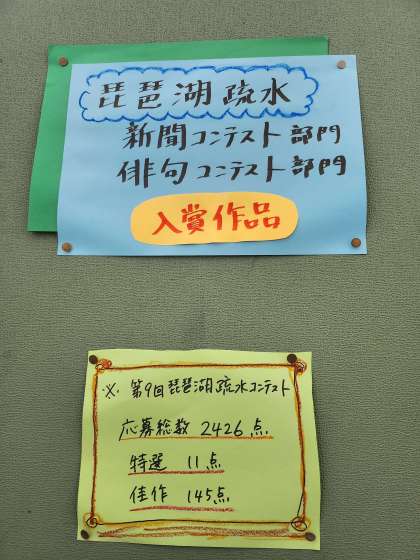 琵琶湖疏水
新聞コンテスト部門
俳句コンテスト部門
入賞作品
※第9回琵琶湖疏水コンテスト
応募総数 2426点
特選 11点
佳作 145点